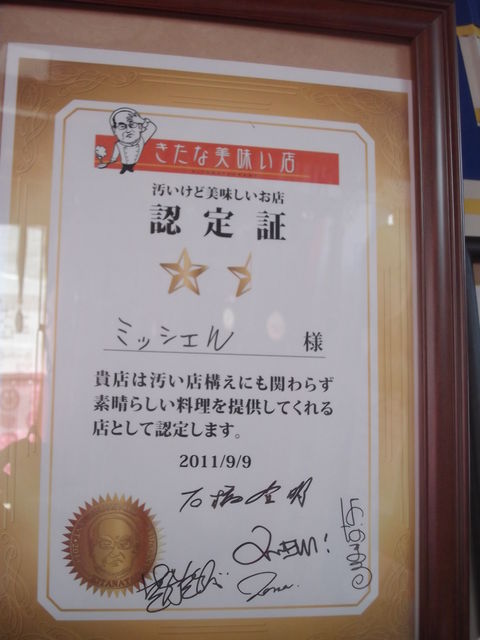 きたな美味い店
汚いけど美味しいお店
認定証
ミッシェル 様
貴店は汚い店構えにも関わらず
素晴らしい料理を提供してくれる
店として認定します。
2011/9/9